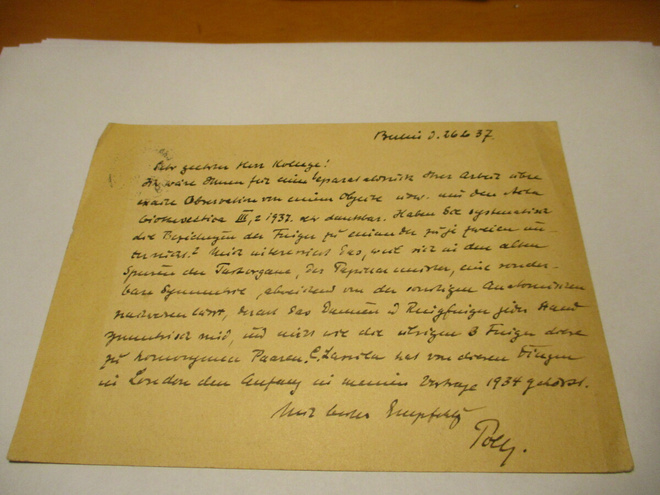 Berlin d. 26.6.37.
Sehr geehrter Herr Kollege!
Ich wäre Ihnen für einen Separatabdruck Ihrer Arbeit über
exakte Observation von einem Objecte usw. aus den Acta
biotheoretica III, 2 1937. sehr dankbar. Haben Sie systematisch
die Beziehungen der Finger zu einander zu je zweien un-
tersucht? Mich interessiert das, weil sich in den alten
Spuren der Tastorgane, des Papillarmusters, eine sonder-
bare Symmetrie, abweichend von der sonstigen Anatomischen
nachweisen lässt, derart das Daumen u Ringfinger jeder Hand
symmetrisch sind, und nicht wie die übrigen 3 Finger dieses
zu homonymen Paaren. C. hat von diesen Dingen
in London den Anfang in meinem Vortrage 1934 gehört.
Mit bester Empfehlg
Poll.